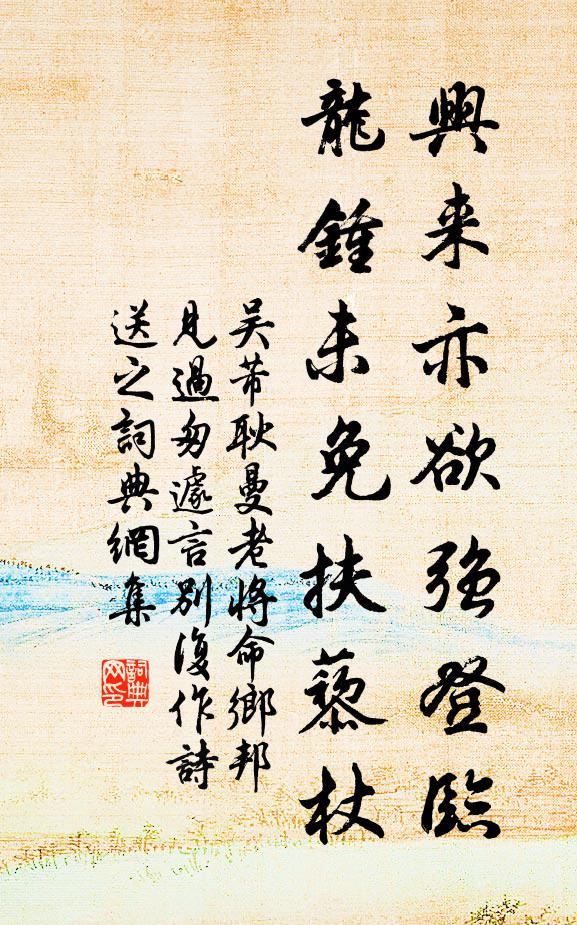 興来亦欲強登臨
龍鍾未免扶藜杖
吴芾耿曼老將命鄉邦
見過匆遽言別復作詩
送之詞典網集
詞典网印